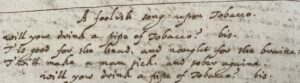 A foolish song upon Tobacco.
will you drink a pipe of Tobacco? bis.
T'is good for the head, and nought for the braine
T'will make a man sick, and sober againe
will you drink a pipe of Tobacco? bis.